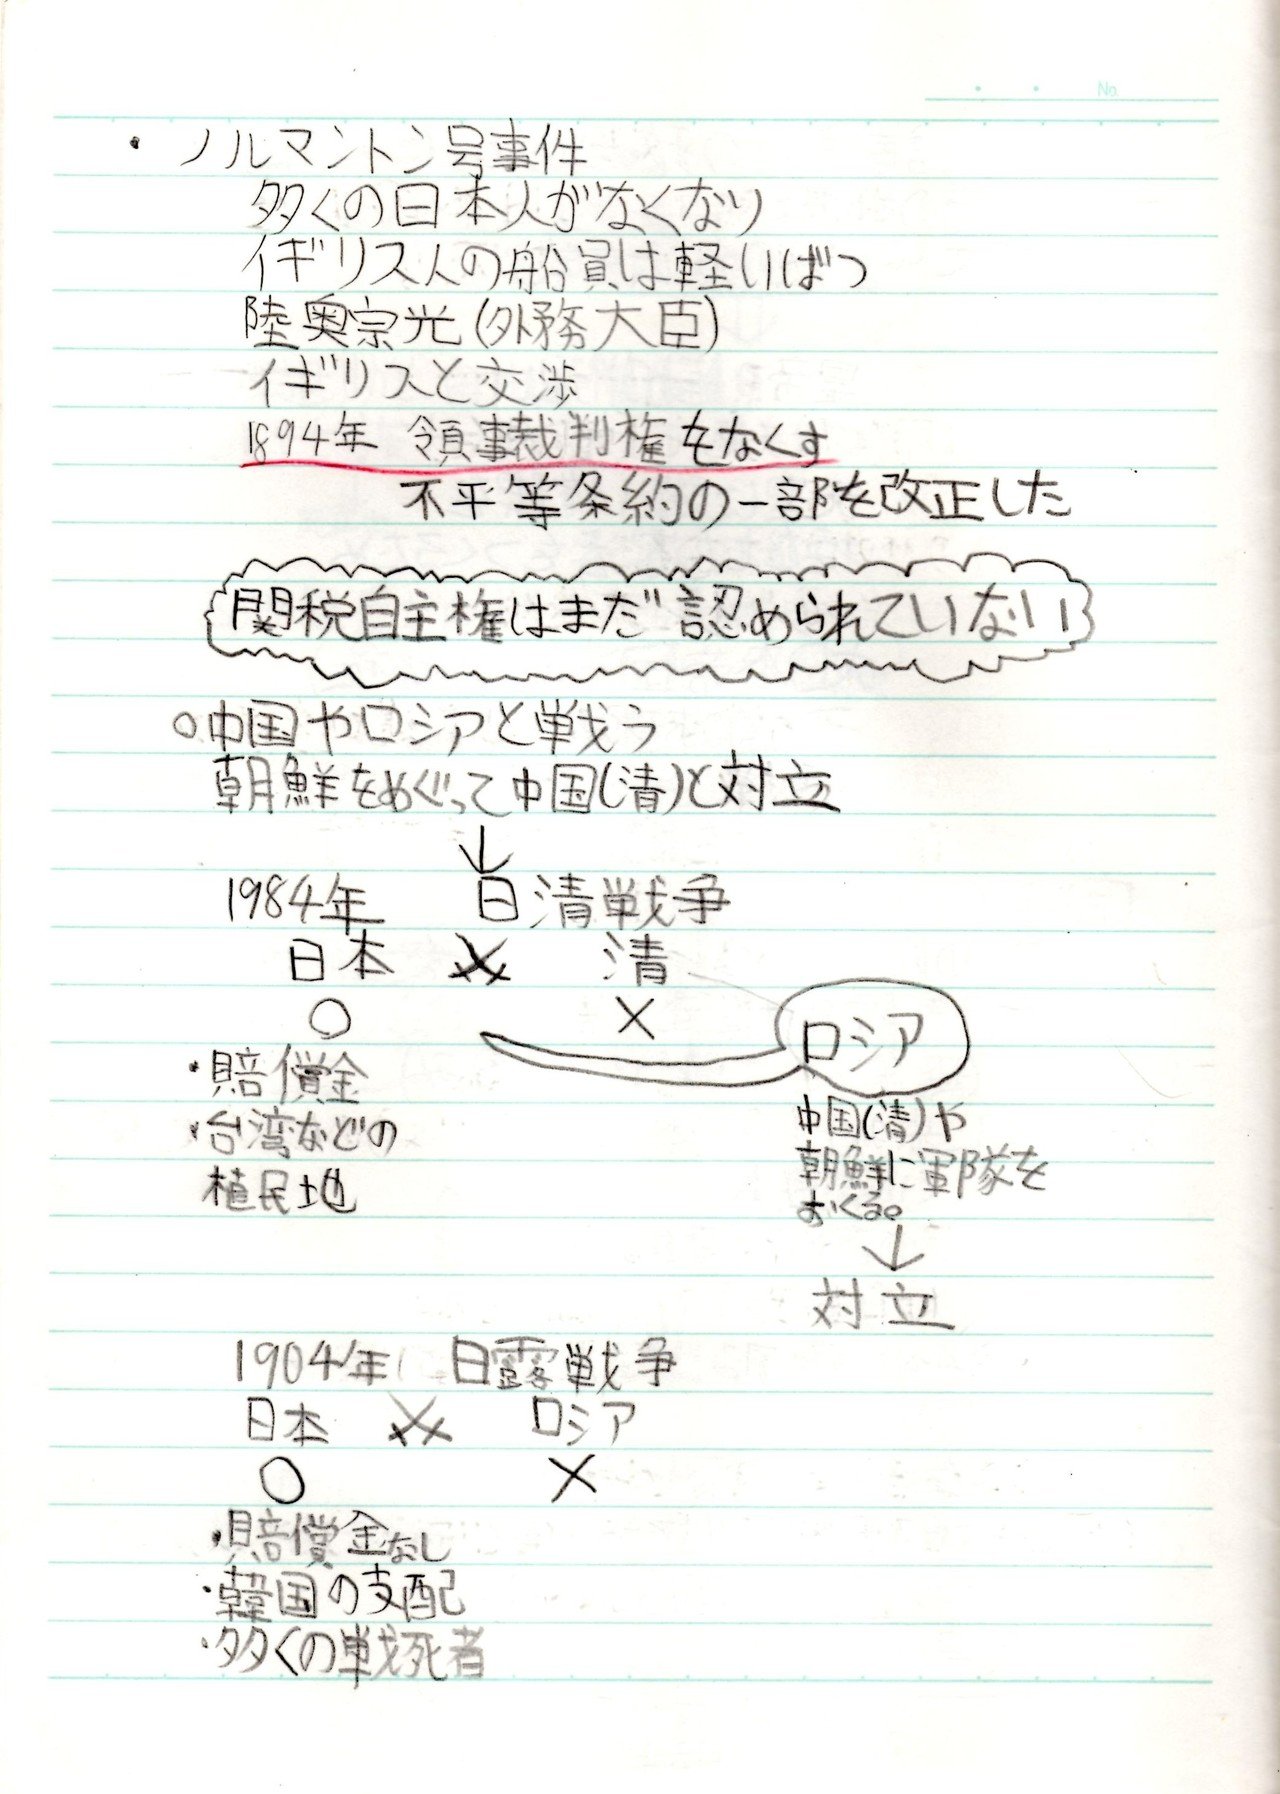 No.
・ノルマントン号事件
多くの日本人がなくなり
イギリス人の船員は軽いばつ
陸奥宗光(外務大臣)
イギリスと交渉
1894年 領事裁判権をなくす
不平等条約の一部を改正した
関税自主権はまだ認められていない
○中国やロシアと戦う
朝鮮をめぐって中国(清)と対立
↓
1984年 日清戦争
日本 × 清
○ ×
ロシア
・賠償金
・台湾などの
植民地
中国(清)や
朝鮮に軍隊を
おくる。
↓
対立
1904年 日露戦争
日本 × ロシア
○ ×
・賠償金なし
・韓国の支配
・多くの戦死者